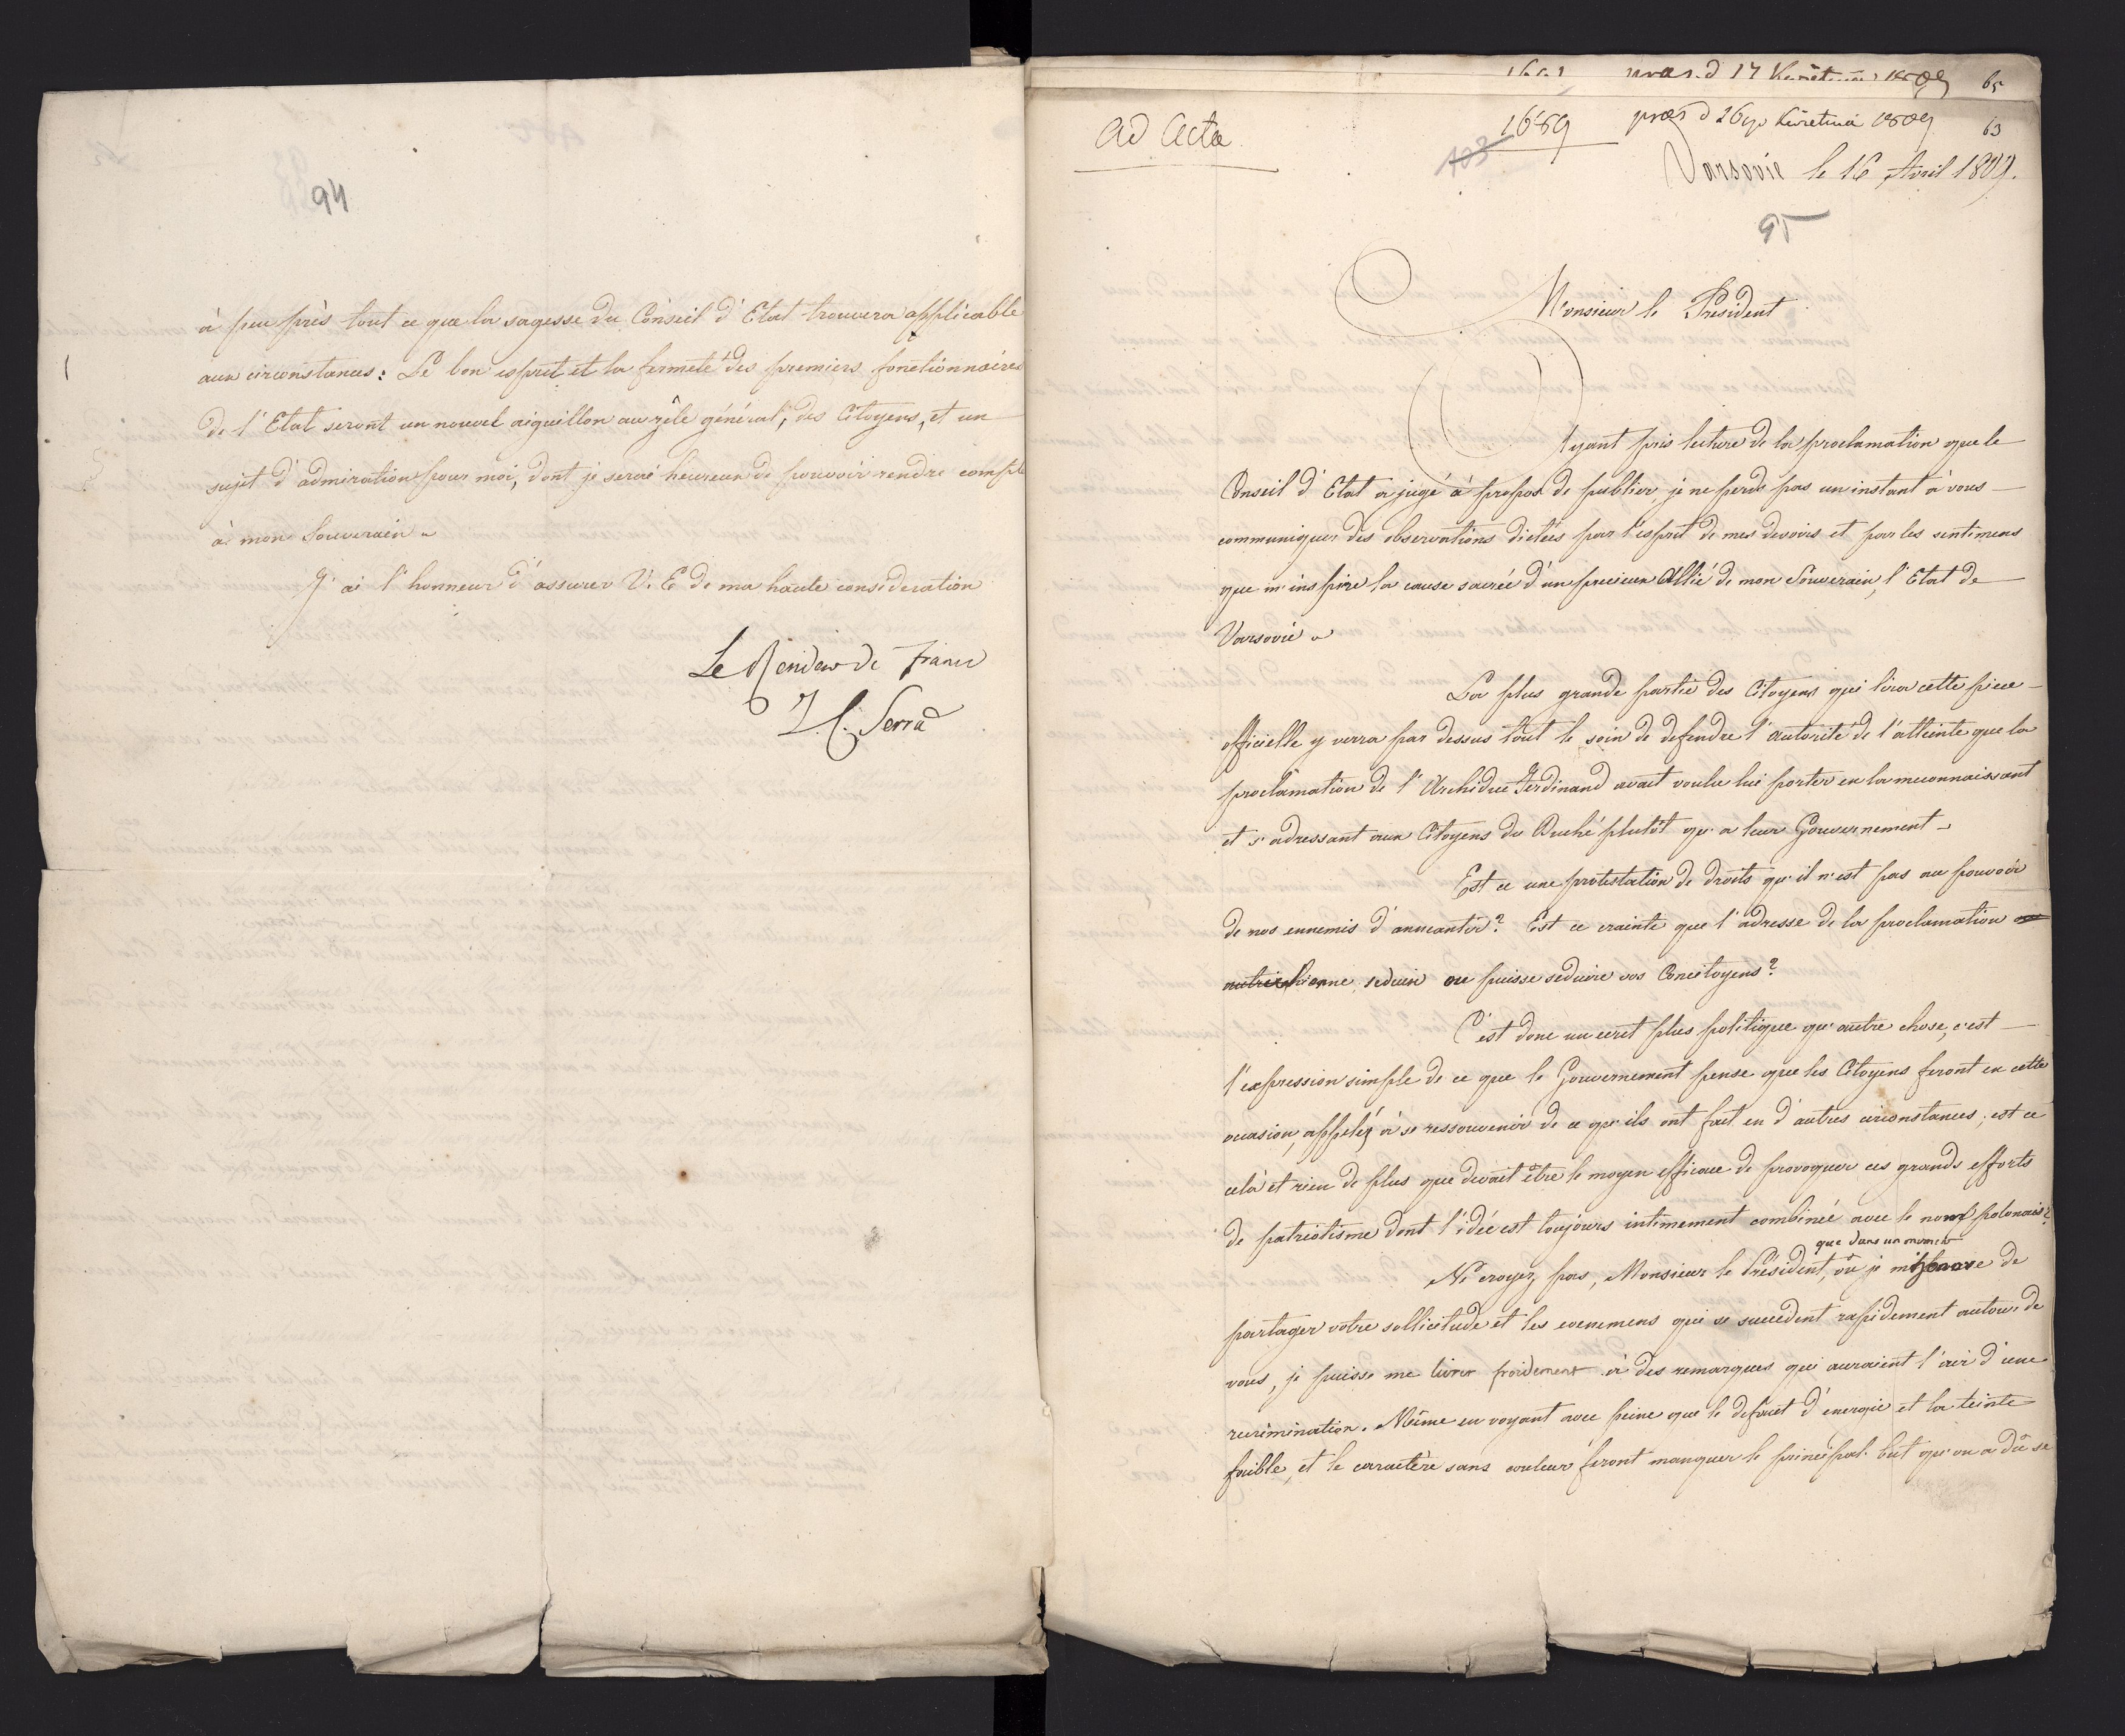 94
à peu près tout ce que la sagesse du Conseil d'Etat trouvera applicable
aux circonstances: Le bon esprit et la fermeté des premiers fonctionnaires
de l'Etat seront un nouvel aiguillon au zêle général, des Citoyens, et un
sujet d'admiration pour moi, dont je serai heureux de pouvoir rendre compte
à mon Souverain
J'ai l'honneur d'assurer V. E de ma haute consideration
Le Resident de France
J. C. Serra
præs. d 17 Kwietnia 1809 65
Ad Acta 1689 præs d 16go Kwietnia 1809 63
103
Varsovie le 16 Avril 1809.
95
Monsieur le Président
Ayant pris lecture de la proclamation que le
Conseil d'Etat a jugé à propos de publier, je ne perds pas un instant à vous
communiquer des observations dictées par l'esprit de mes devoirs et par les sentimens
que m'inspire la cause sacrée d'un precieux Allié de mon Souverain, l'Etat de
Varsovie
La plus grande partie des Citoyens qui lira cette piece
officielle y verra par dessus tout le soin de defendre l'autorité de l'atteinte que la
proclamation de l'Archiduc Ferdinand avait voulu lui porter en la meconnaissant
et s'adressant aux Citoyens du Duché plutôt qu'a leur Gouvernement
Est ce une protestation de droits qu'il n'est pas au pouvoir
de nos ennemis d'anneantir? Est ce crainte que l'adresse de la proclamation
autrichienne seduise ou puisse seduire vos Concitoyens?
C'est donc un ecrit plus politique qu'autre chose, c'est
l'expression simple de ce que le Gouvernement pense que les Citoyens feront en cette
occasion, appelés à se ressouvenir de ce qu'ils ont fait en d'autres circonstances; est ce
celà et rien de plus que devait être le moyen efficace de provoquer ces grands efforts
de patriotisme dont l'idée est toujours intimement combinée avec le nom polonais?
que dans un moment
Ne croyez pas, Monsieur le Président, où je m'honore de
partager votre sollicitude et les evenemens qui se succedent rapidement autour de
vous, je puisse me livrer froidement à des remarques qui auraient l'air d'une
recrimination. Même en voyant avec peine que le defaut d'energie et la teinte
faible, et le caractère sans couleur feront manquer le principal but qu'on a dû se